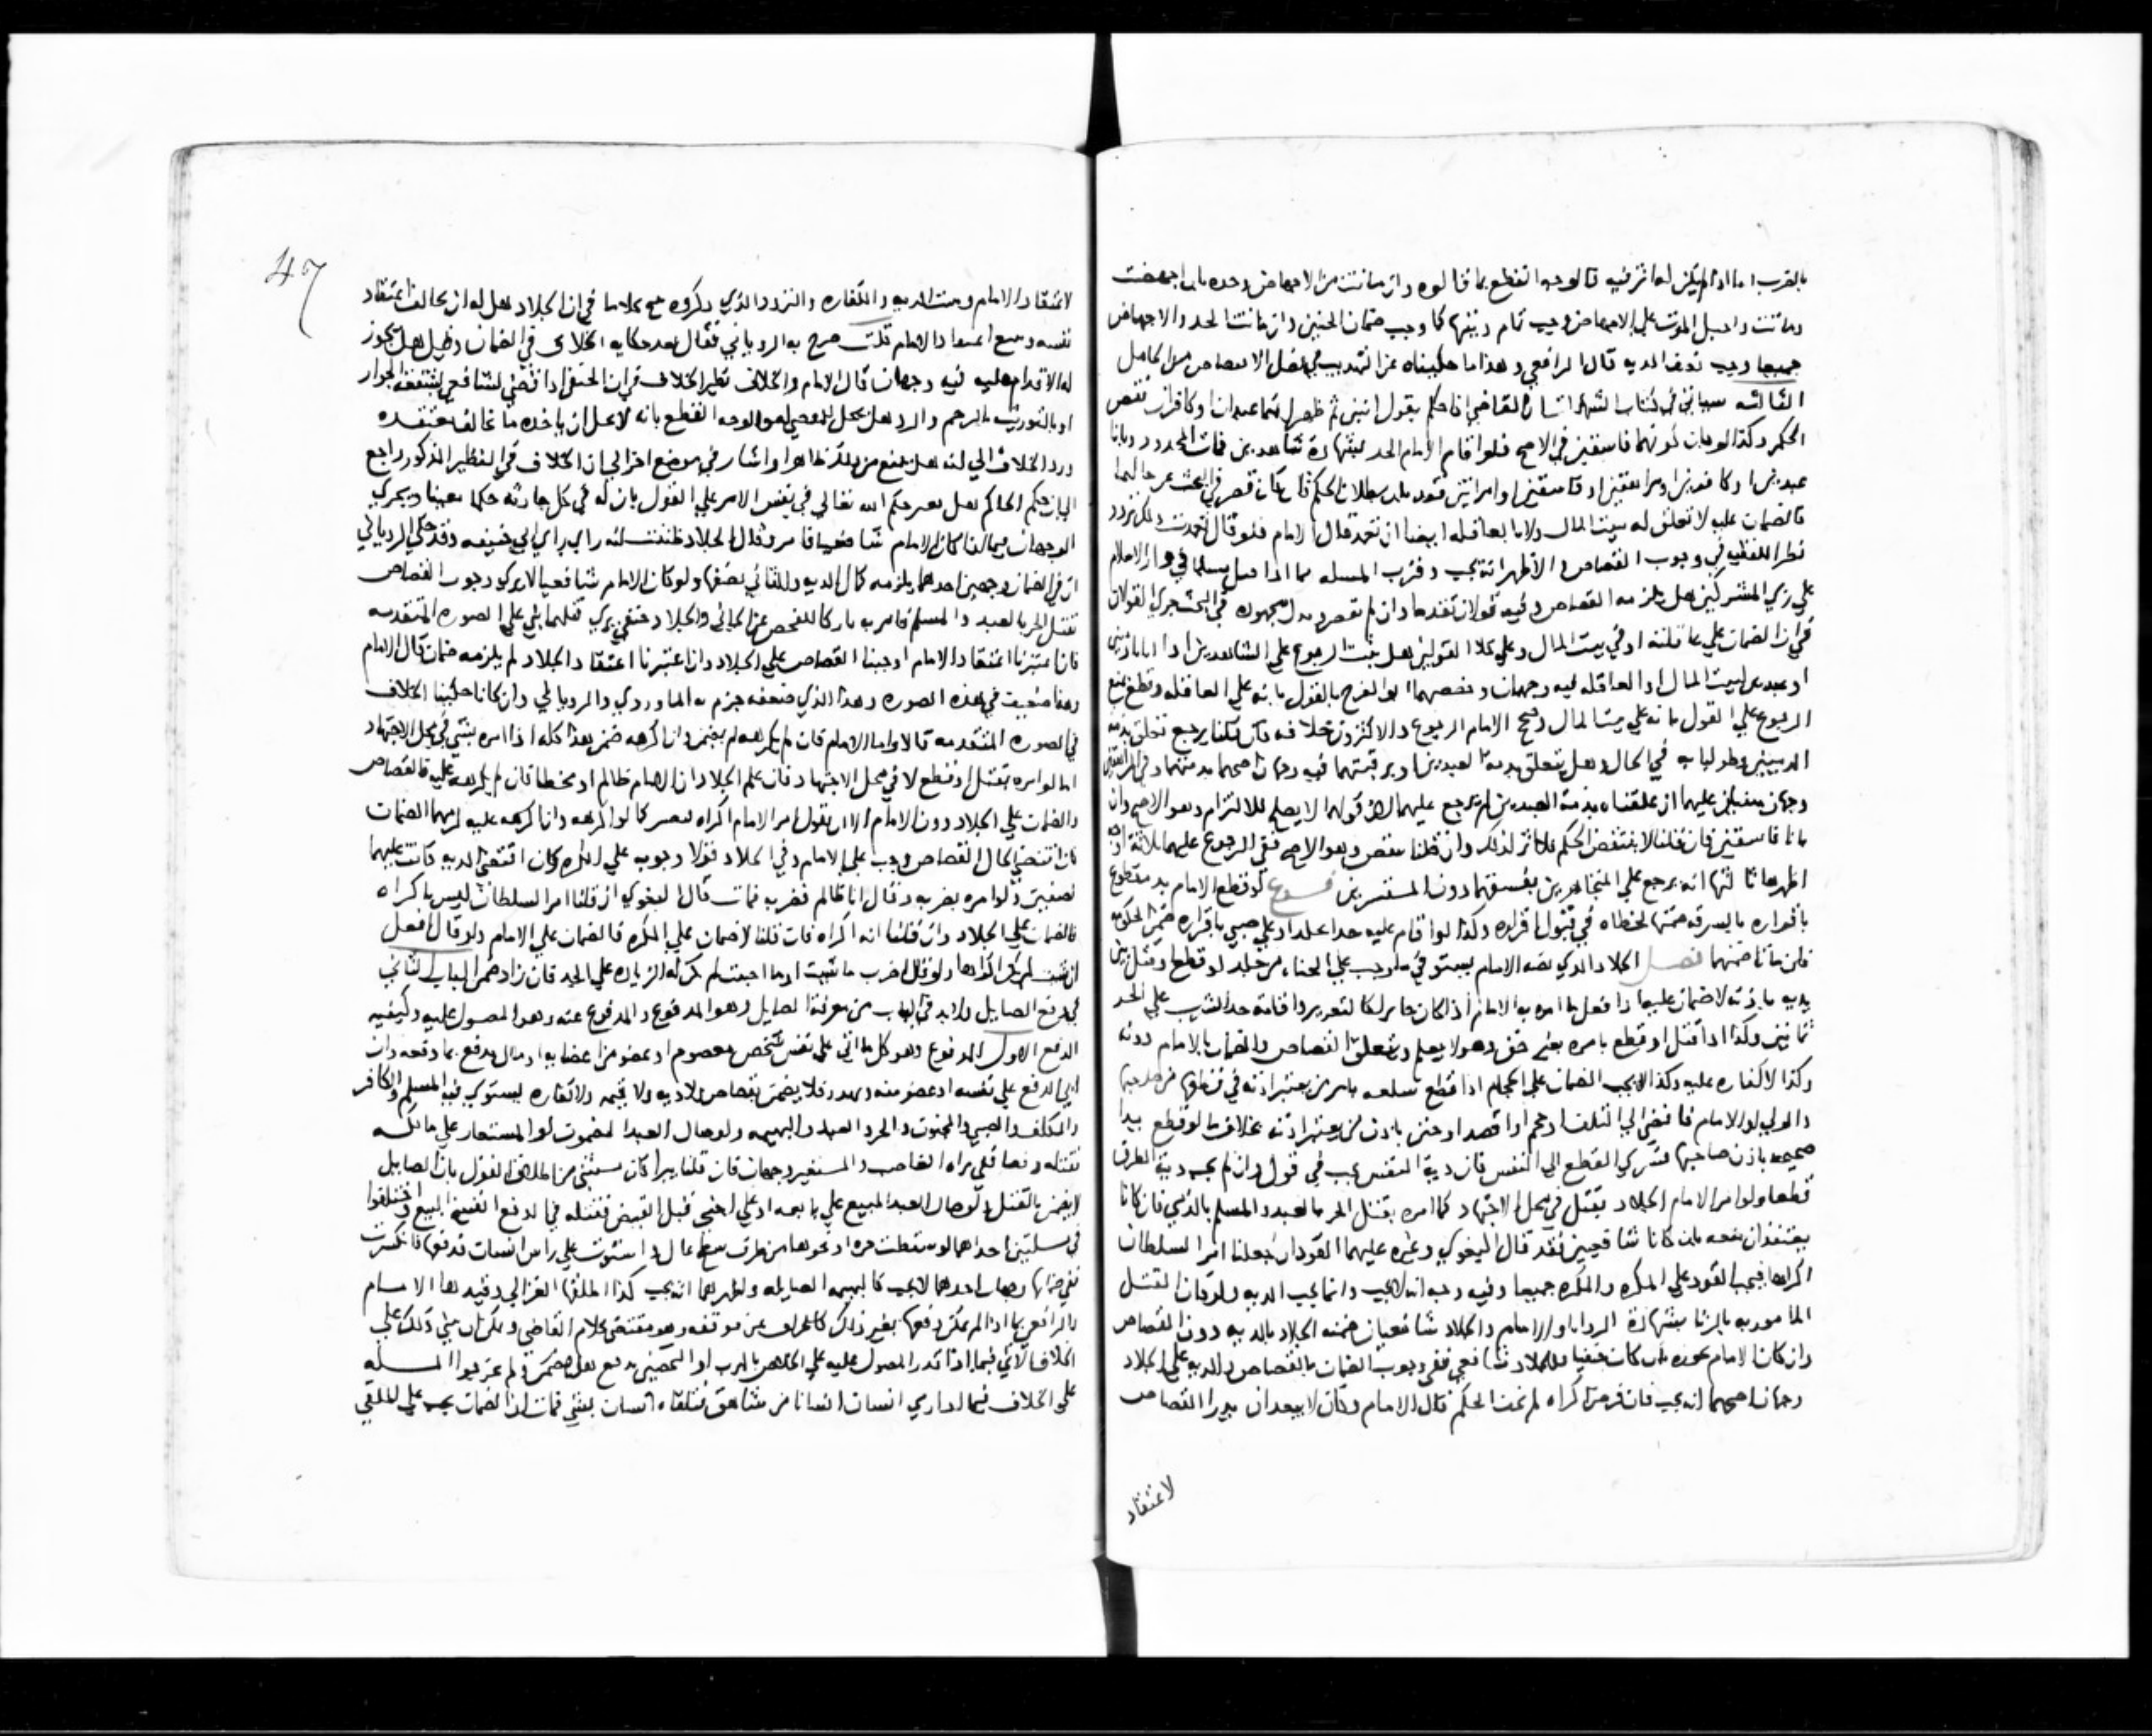 بالضرب اما اذا لم يكن له اثر فيه فالوجه القطع بما قالوه وان ماتت من الاجهاض وحده بان اجهضت
وماتت واحيل الموت علي الاجهاض وجب تمام ديتها كما وجب ضمان الجنين وان ماتت بالحد والاجهاض
جميعا وجب نصف الديه قال الرافعي وهذا ما حكيناه عن التهذيب في فصل
الثالثه سياتي في كتاب الشهادات ان القاضي اذا حكم بقول اثنين ثم ظهر انهما عبدان او كافران نقض
الحكم وكذا لو بان كونهما فاسقين في الاصح فلو اقام الامام الحد بشهادة شاهدين فمات المحدود وبانا
عبدين او كافرين او مراهقين او فاسقين او امراتين فقد بان بطلان الحكم فان كان قصر في البحث عن حالهما
فالضمان عليه لا تعلق له ببيت المال ولا بالعاقله ايضا ان تعمد قال الامام فلو قال تعمدت
نظر القفال في وجوب القصاص والاظهر انه يجب وقرب المسله مما اذا قتل مسلما في دار الاسلام
علي زي المشركين هل يلزمه القصاص وفيه قولان تقدما وان لم يقصر وبذل مجهوده في البحث جري القولان
في ان الضمان علي عاقلته او في بيت المال وعلي كلا القولين هل يثبت الرجوع علي الشاهدين اذا بانا ذميين
او عبدين لبيت المال او العاقله فيه وجهان وخصهما ابو الفرج بالقول بانه علي العاقله وقطع بمنع
الرجوع علي القول بانه علي بيت المال ورجح الامام الرجوع والاكثرون خلافه فان قلنا يرجع تعلق بذمه
الذميين وطولبا به في الحال وهل يتعلق بذمة العبدين او برقبتهما فيه وجهان اصحهما بذمتهما وفي المراهقين
وجهان مبنيان عليهما ان علقناه بذمة العبدين لم يرجع عليهما لان قولهما لا يصلح للالتزام وهو الاصح وان
بانا فاسقين فان قلنا لا ينتقض الحكم فلا اثر لذلك وان قلنا ينقض وهو الاصح ففي الرجوع عليهما ثلاثة اوجه
اظهرها ثالثها انه يرجع علي المتجاهرين بفسقهما دون المستترين فروع لو قطع الامام يد مقطوع
باقراره بالسرقه ضمنها لخطاه في قبول اقراره وكذا لو اقام عليه حدا علي صبي باقراره ضمن الحكومه
فان ماتا ضمنهما فصل الجلاد الذي نصبه الامام يستوفي ما وجب علي الجناه من جلد او قطع او قتل بين
يديه باذنه لا ضمان عليه اذا فعل ما امره به الامام اذا كان جايرا كالتعزير واقامة حد الشرب علي الحر
ثمانين وكذا اذا قتل او قطع بامره بغير حق وهو لا يعلم ويتعلق القصاص والضمان بالامام دونه
وكذا لا كفاره عليه وكذا لا يجب الضمان علي الحجام اذا قطع سلعه بامر من يعتبر اذنه في قطعها من صاحبها
والولي او الامام فافضي الي التلف او حجم او فصد او ختن باذن من يعتبر اذنه بخلاف ما لو قطع يدا
صحيحه باذن صاحبها فسري القطع الي النفس فان دية النفس تجب في قول وان لم يجب دية الطرف
قطعا ولو امر الامام الجلاد بقتل في محل الاجتهاد كما امره بقتل الحر بالعبد والمسلم بالذمي فان كانا
يعتقدان منعه بان كانا شافعيين فقد قال البغوي وغيره عليهما القود ان جعلنا امر السلطان
اكراها فيجب القود علي المكره والمكره جميعا وفيه وجه انه لا يجب وانما يجب الديه ولو كان القتل
المامور به بالزنا بشهادة الزوايا والامام والجلاد شافعيان ضمنه الجلاد بالديه دون القصاص
وان كان الامام يجوزه بان كان حنفيا والجلاد شافعي ففي وجوب الضمان بالقصاص والديه علي الجلاد
وجهان اصحهما انه يجب فان فرض اكراه لم يخف الحكم قال الامام وكان لا يبعد ان يدرا القصاص
لاعتقاد
47
لاعتقاد الامام وتثبت الديه والكفاره والتردد الذي ذكروه مع كلاما في ان الجلاد هل له ان يخالف اعتقاد
نفسه ويتبع اعتقاد الامام قلت صرح به الروياني فقال بعد حكايه الخلاف في الضمان وقيل هل يجوز
له الاقدام عليه فيه وجهان قال الامام والخلاف نظير الخلاف في ان الحنفي اذا قضي لشافعي بشفعه الجوار
او بالتوريث بالرحم والرد هل يحل للمقضي له والوجه القطع بانه لا يحل ان ياخذه ما يخالف معتقده
ورد الخلاف الي انه هل يمنع من ذلك ظاهرا واشار في موضع اخر الي ان الخلاف في النظير المذكور راجع
الي ان حكم الحاكم هل يغير حكم الله تعالي في نفس الامر علي القول بان له في كل حادثه حكما معينا ويجري
الوجهان فيما لو كان الامام شافعيا فامر وقال الجلاد ظننت انه راي راي ابي حنيفه وقد حكي الروياني
ان في الضمان وجهين احدهما يلزمه كمال الديه والثاني نصفها ولو كان الامام شافعيا لا يري وجوب القصاص
بقتل الحر بالعبد والمسلم فامر به تاركا للفحص عن الجاني والجلاد حنفي يري قتلهما بني علي الصوره المتقدمه
فان اعتبرنا اعتقاد الامام اوجبنا القصاص علي الجلاد وان اعتبرنا اعتقاد الجلاد لم يلزمه ضمان قال الامام
وهنا ضعيف في هذه الصوره وهذا الذي ضعفه جزم به الماوردي والروياني وان كانا حكينا الخلاف
في الصوره المتقدمه قالا واما الامام فان لم يكرهه لم يضمن وان اكرهه ضمن هذا كله اذا امره بشي في محل الاجتهاد
اما لو امره بقتل او قطع لا في محل الاجتهاد فان علم الجلاد ان الامام ظالم او مخطا فان لم يكرهه عليه فالقصاص
والضمان علي الجلاد دون الامام الا ان يقول امر الامام اكراه فيصير كما لو اكرهه وان اكرهه عليه لزمهما الضمان
فان اقتضي الحال القصاص وجب علي الامام وفي الجلاد قولا وجوبه علي المكره وان اقتضي الديه فانت عليهما
نصفين ولو امره بضربه وقال انا ظالم فضربه فمات قال البغوي ان قلنا امر السلطان ليس باكراه
فالضمان علي الجلاد وان قلنا انه اكراه فان قلنا لا ضمان علي المكره فالضمان علي الامام ولو قال افعل
ان شيت لم يكن اكراها ولو قال اضرب ما شيت او ما احببت لم يكن له الزياده علي الحد فان زاد ضمن الباب الثاني
في دفع الصايل ولابد في الباب من معرفة الصايل وهو المدفوع والمدفوع عنه وهو المصول عليه وكيفيه
الدفع الاول المدفوع وهو كل ما اتي علي نفس شخص معصوم او عضو من اعضايه او مال يدفع بما دفعه وان
اتي الدفع علي نفسه او عضو منه ويهدر فلا يضمن بقصاص ولا ديه ولا قيمه ولا كفاره يستوي فيه المسلم والكافر
والمكلف والصبي والمجنون والحر والعبد والبهيمه ولو صال العبد المغصوب او المستعار علي مالكه
فقتله دفعا ففي براه الغاصب والمستعير وجهان فان قلنا يبرا كان مستثني من اطلاق القول بان الصايل
لا يضمن بالقتل ولو صال العبد المبيع علي بايعه او علي اجنبي قبل القبض فقتله في الدفع انفسخ البيع واختلفوا
في مسلتين احداهما لو سقطت جره او نحوها من طرف سطح عال واستوت علي راس انسان فدفعها فانكسرت
ففي ضمانها وجهان احدهما لا يجب كالبهيمه الصايله واظهرهما انه يجب كذا اطلقها الغزالي وقيدها الامام
والرافعي بما اذا لم يمكن دفعها بغير ذلك كالانحراف عن موقفه وهو مقتضي كلام القاضي ويمكن ان يبني ذلك علي
الخلاف الاتي فيما اذا قدر المصول عليه علي الخلاص بالهرب او التحصن فدفع هل يضمن ولم يجروا المسله
علي الخلاف فيما لو ازدي انسان انسانا من شاهق فتلقاه انسان بشي فمات ان الضمان يجب علي الملقي